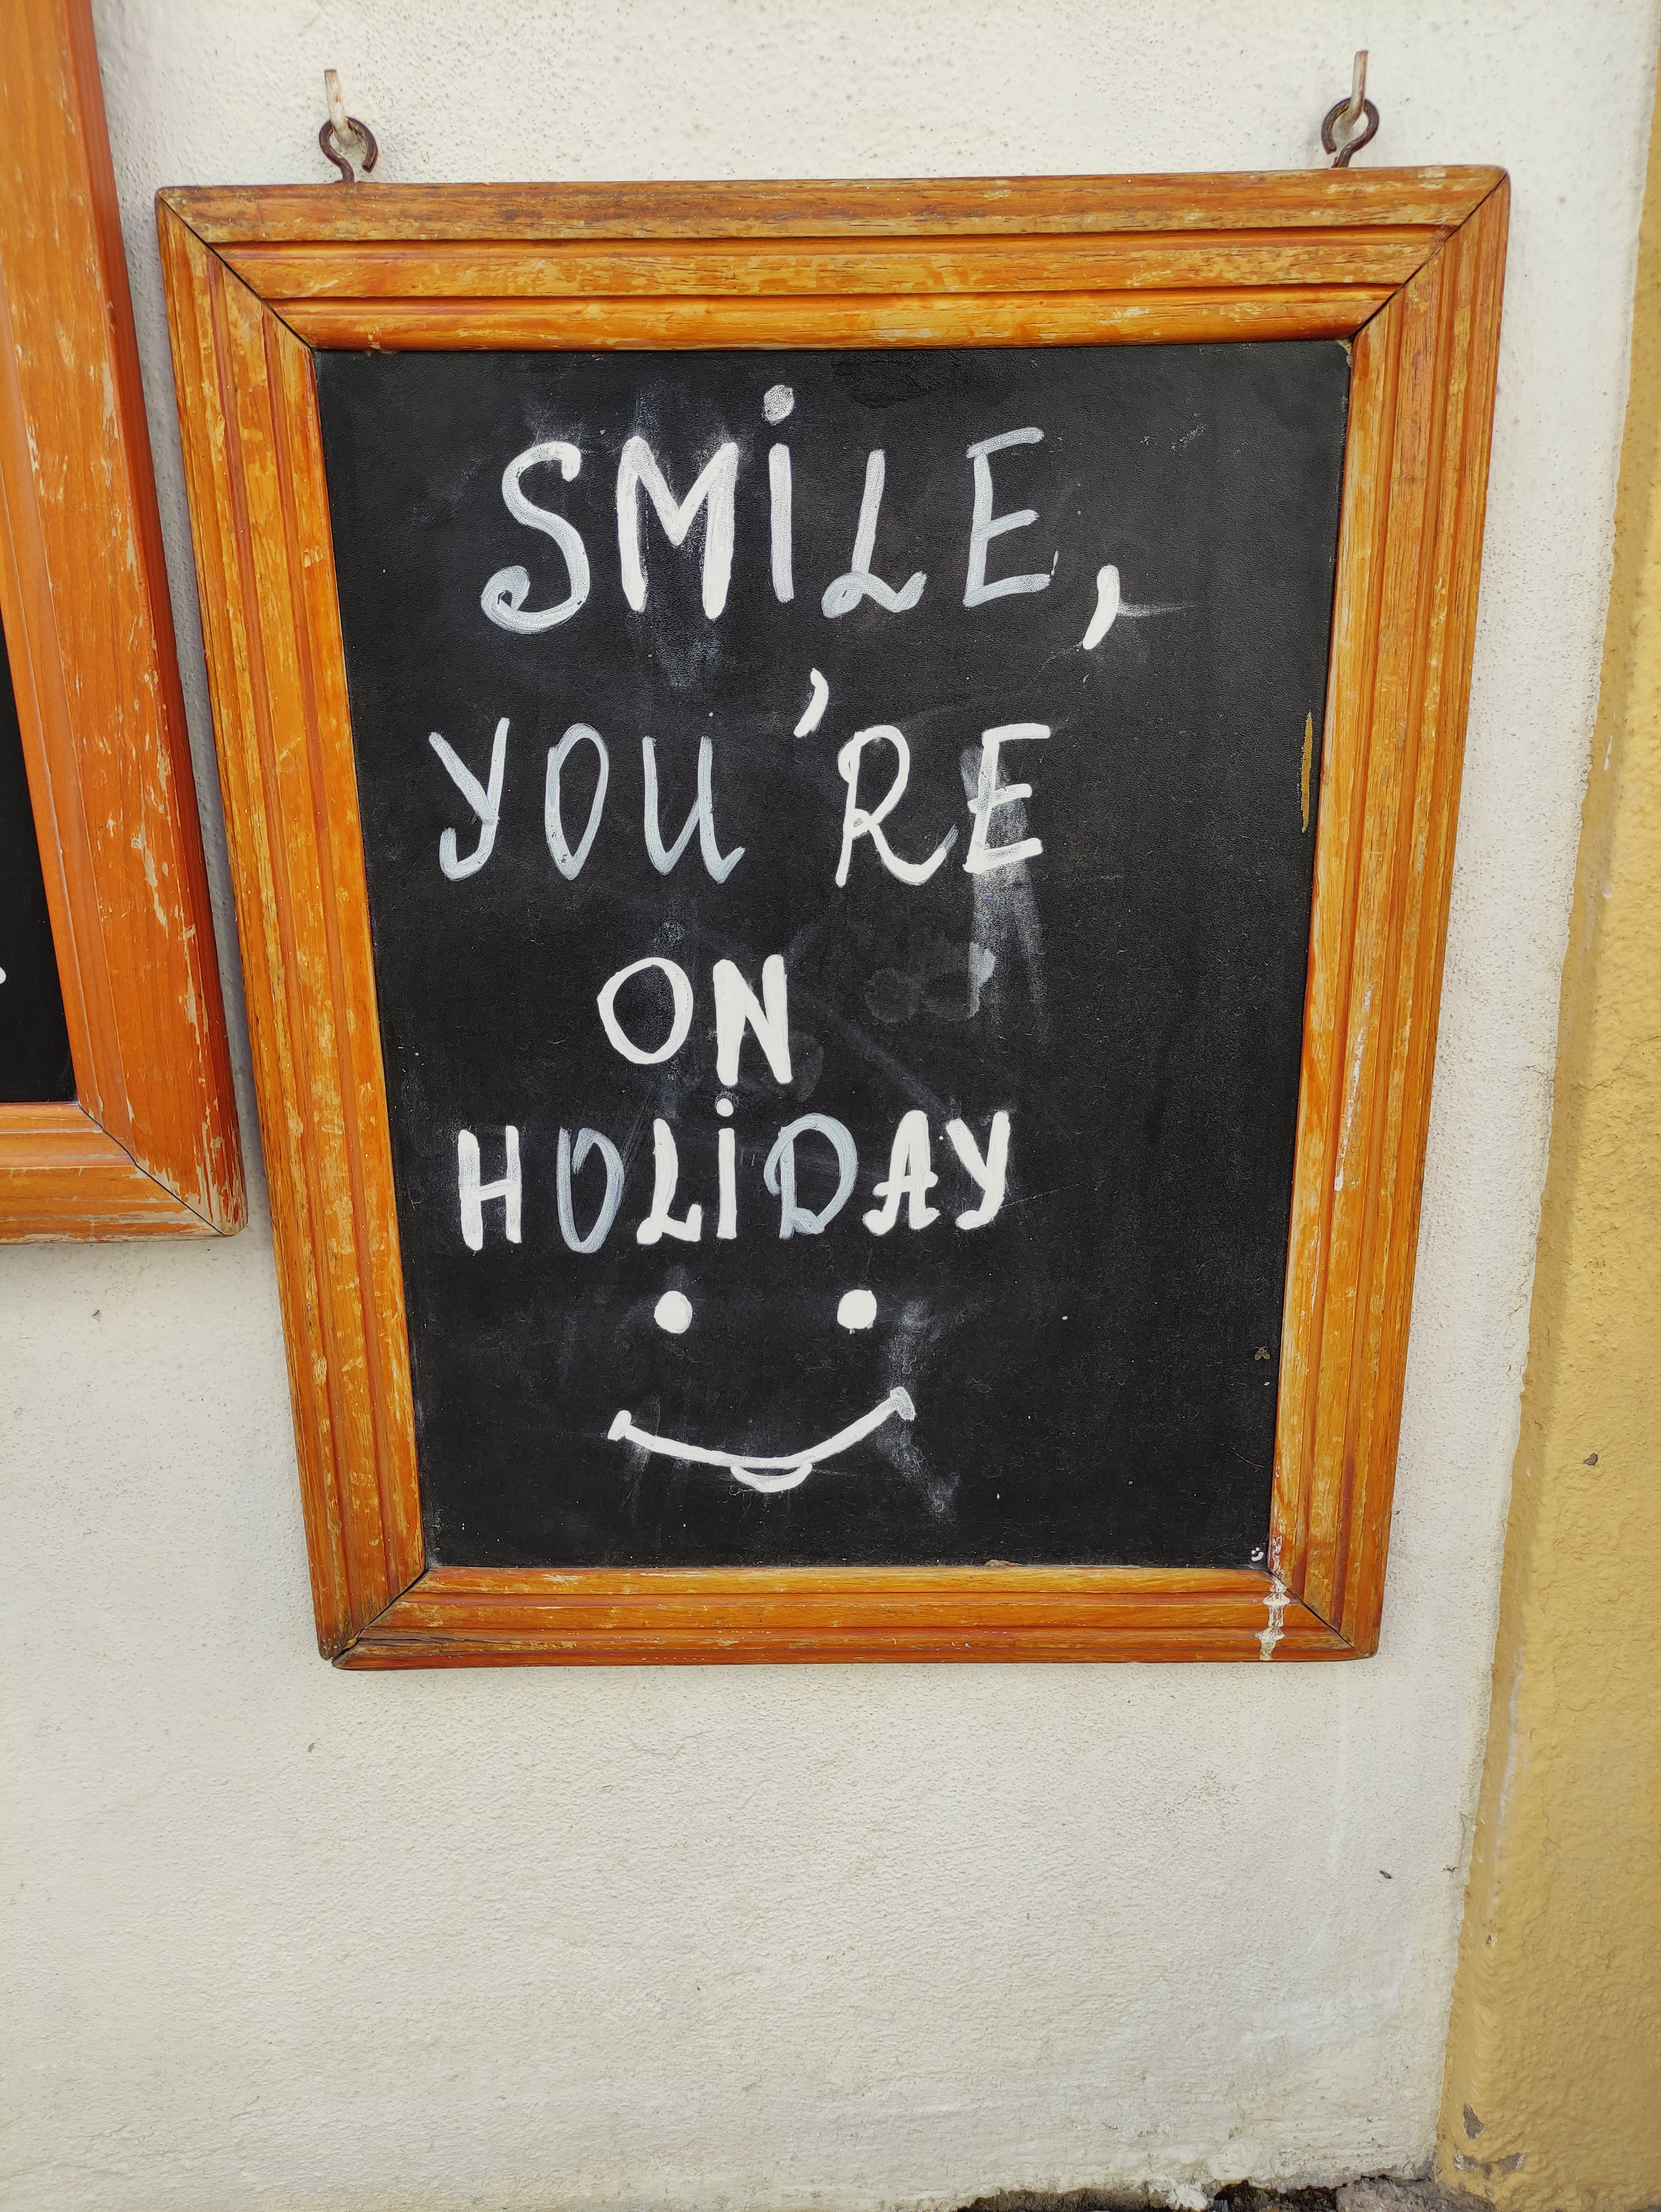 SMiLE,
YOU'RE
ON
HOLiDAY